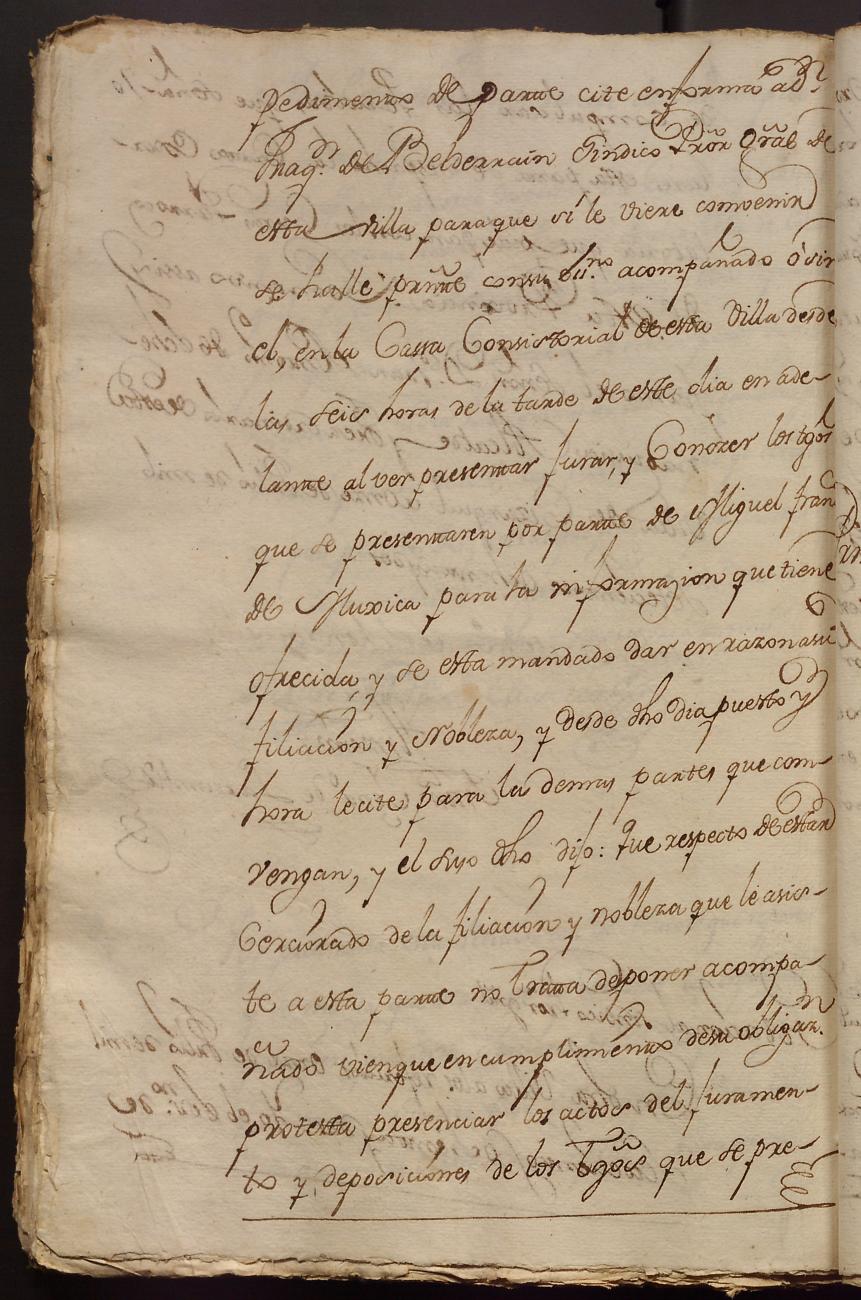 pedimento de parte cite en forma a Dn
Ynaqo. de Belderrain Sindico Pror Gral de
esta villa para que si le viere convenir
se halle presnte. con su essno. acompañado ó sin
el, en la Cassa Consistorial de esta Villa desde
las seis horas de la tarde de este dia en ade-
lante al ver presentar jurar, y Conozer los tgos
que se presentaren por parte de Miguel fran
de Muxica para la informazion que tiene
ofrecida, y se esta mandado dar en razon a su
filiacion y Nobleza, y desde dho dia puesto y
hora le cite para la demas partes que com-
vengan, y el suso dho dijo: Que respecto de estar
Cerciorado de la filiacion y nobleza que le asis-
te a esta parte no Tratta de poner acompa-
ñado vien que en cumplimiento de su obligaz.n
protesta presenciar los actos del juramen-
to y deposiciones de los Tgos que se pre-